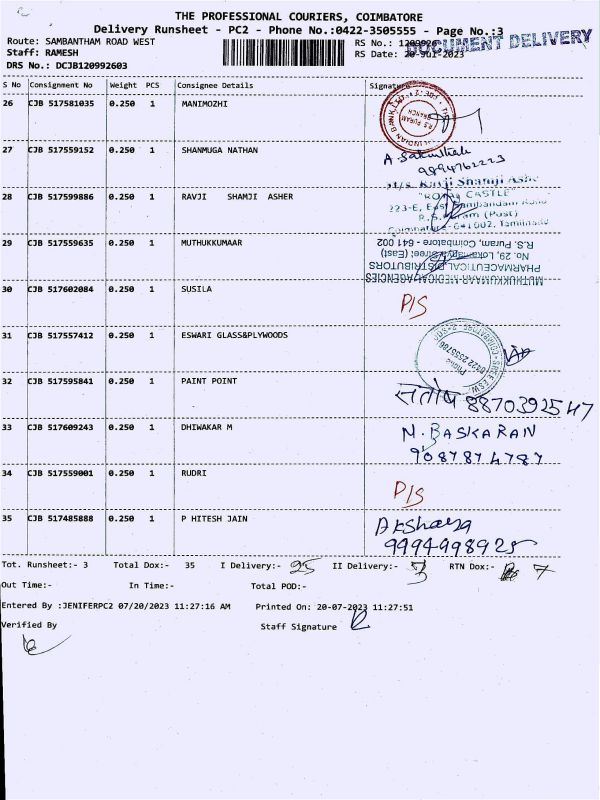 THE PROFESSIONAL COURIERS, COIMBATORE
Delivery Runsheet - PC2 - Phone No.:0422-3505555 - Page No.:3
DOCUMENT DELIVERY
Route: SAMBANTHAM ROAD WEST RS No.:
Staff: RAMESH RS Date: 20-Jul-2023
DRS No.: DCJB120992603
S No Consignment No Weight PCS Consignee Details Signature
26 CJB 517581035 0.250 1 MANIMOZHI
R.S. PURAM BRANCH
27 CJB 517559152 0.250 1 SHANMUGA NATHAN
9894762223
28 CJB 517599886 0.250 1 RAVJI SHAMJI ASHER
M/s. Ravji Shamji Asher
"ROYAL CASTLE"
223-E, East Sambandam Road
R.S. Puram (Post)
Coimbatore - 641 002, Tamilnadu
29 CJB 517559635 0.250 1 MUTHUKKUMAAR
MUTHUKKUMAAR MEDICAL AGENCIES
PHARMACEUTICAL DISTRIBUTORS
No. 29, Lokamanya Street (East)
R.S. Puram, Coimbatore - 641 002
30 CJB 517602084 0.250 1 SUSILA
P/S
31 CJB 517557412 0.250 1 ESWARI GLASS&PLYWOODS
32 CJB 517595841 0.250 1 PAINT POINT
8870392547
33 CJB 517609243 0.250 1 DHIWAKAR M
M. BASKARAN
9087874787
34 CJB 517559001 0.250 1 RUDRI
P/S
35 CJB 517485888 0.250 1 P HITESH JAIN
Akshaya
9994998925
Tot. Runsheet:- 3 Total Dox:- 35 I Delivery:- 25 II Delivery:- 3 RTN Dox:- 7
Out Time:- In Time:- Total POD:-
Entered By :JENIFERPC2 07/20/2023 11:27:16 AM Printed On: 20-07-2023 11:27:51
Verified By Staff Signature